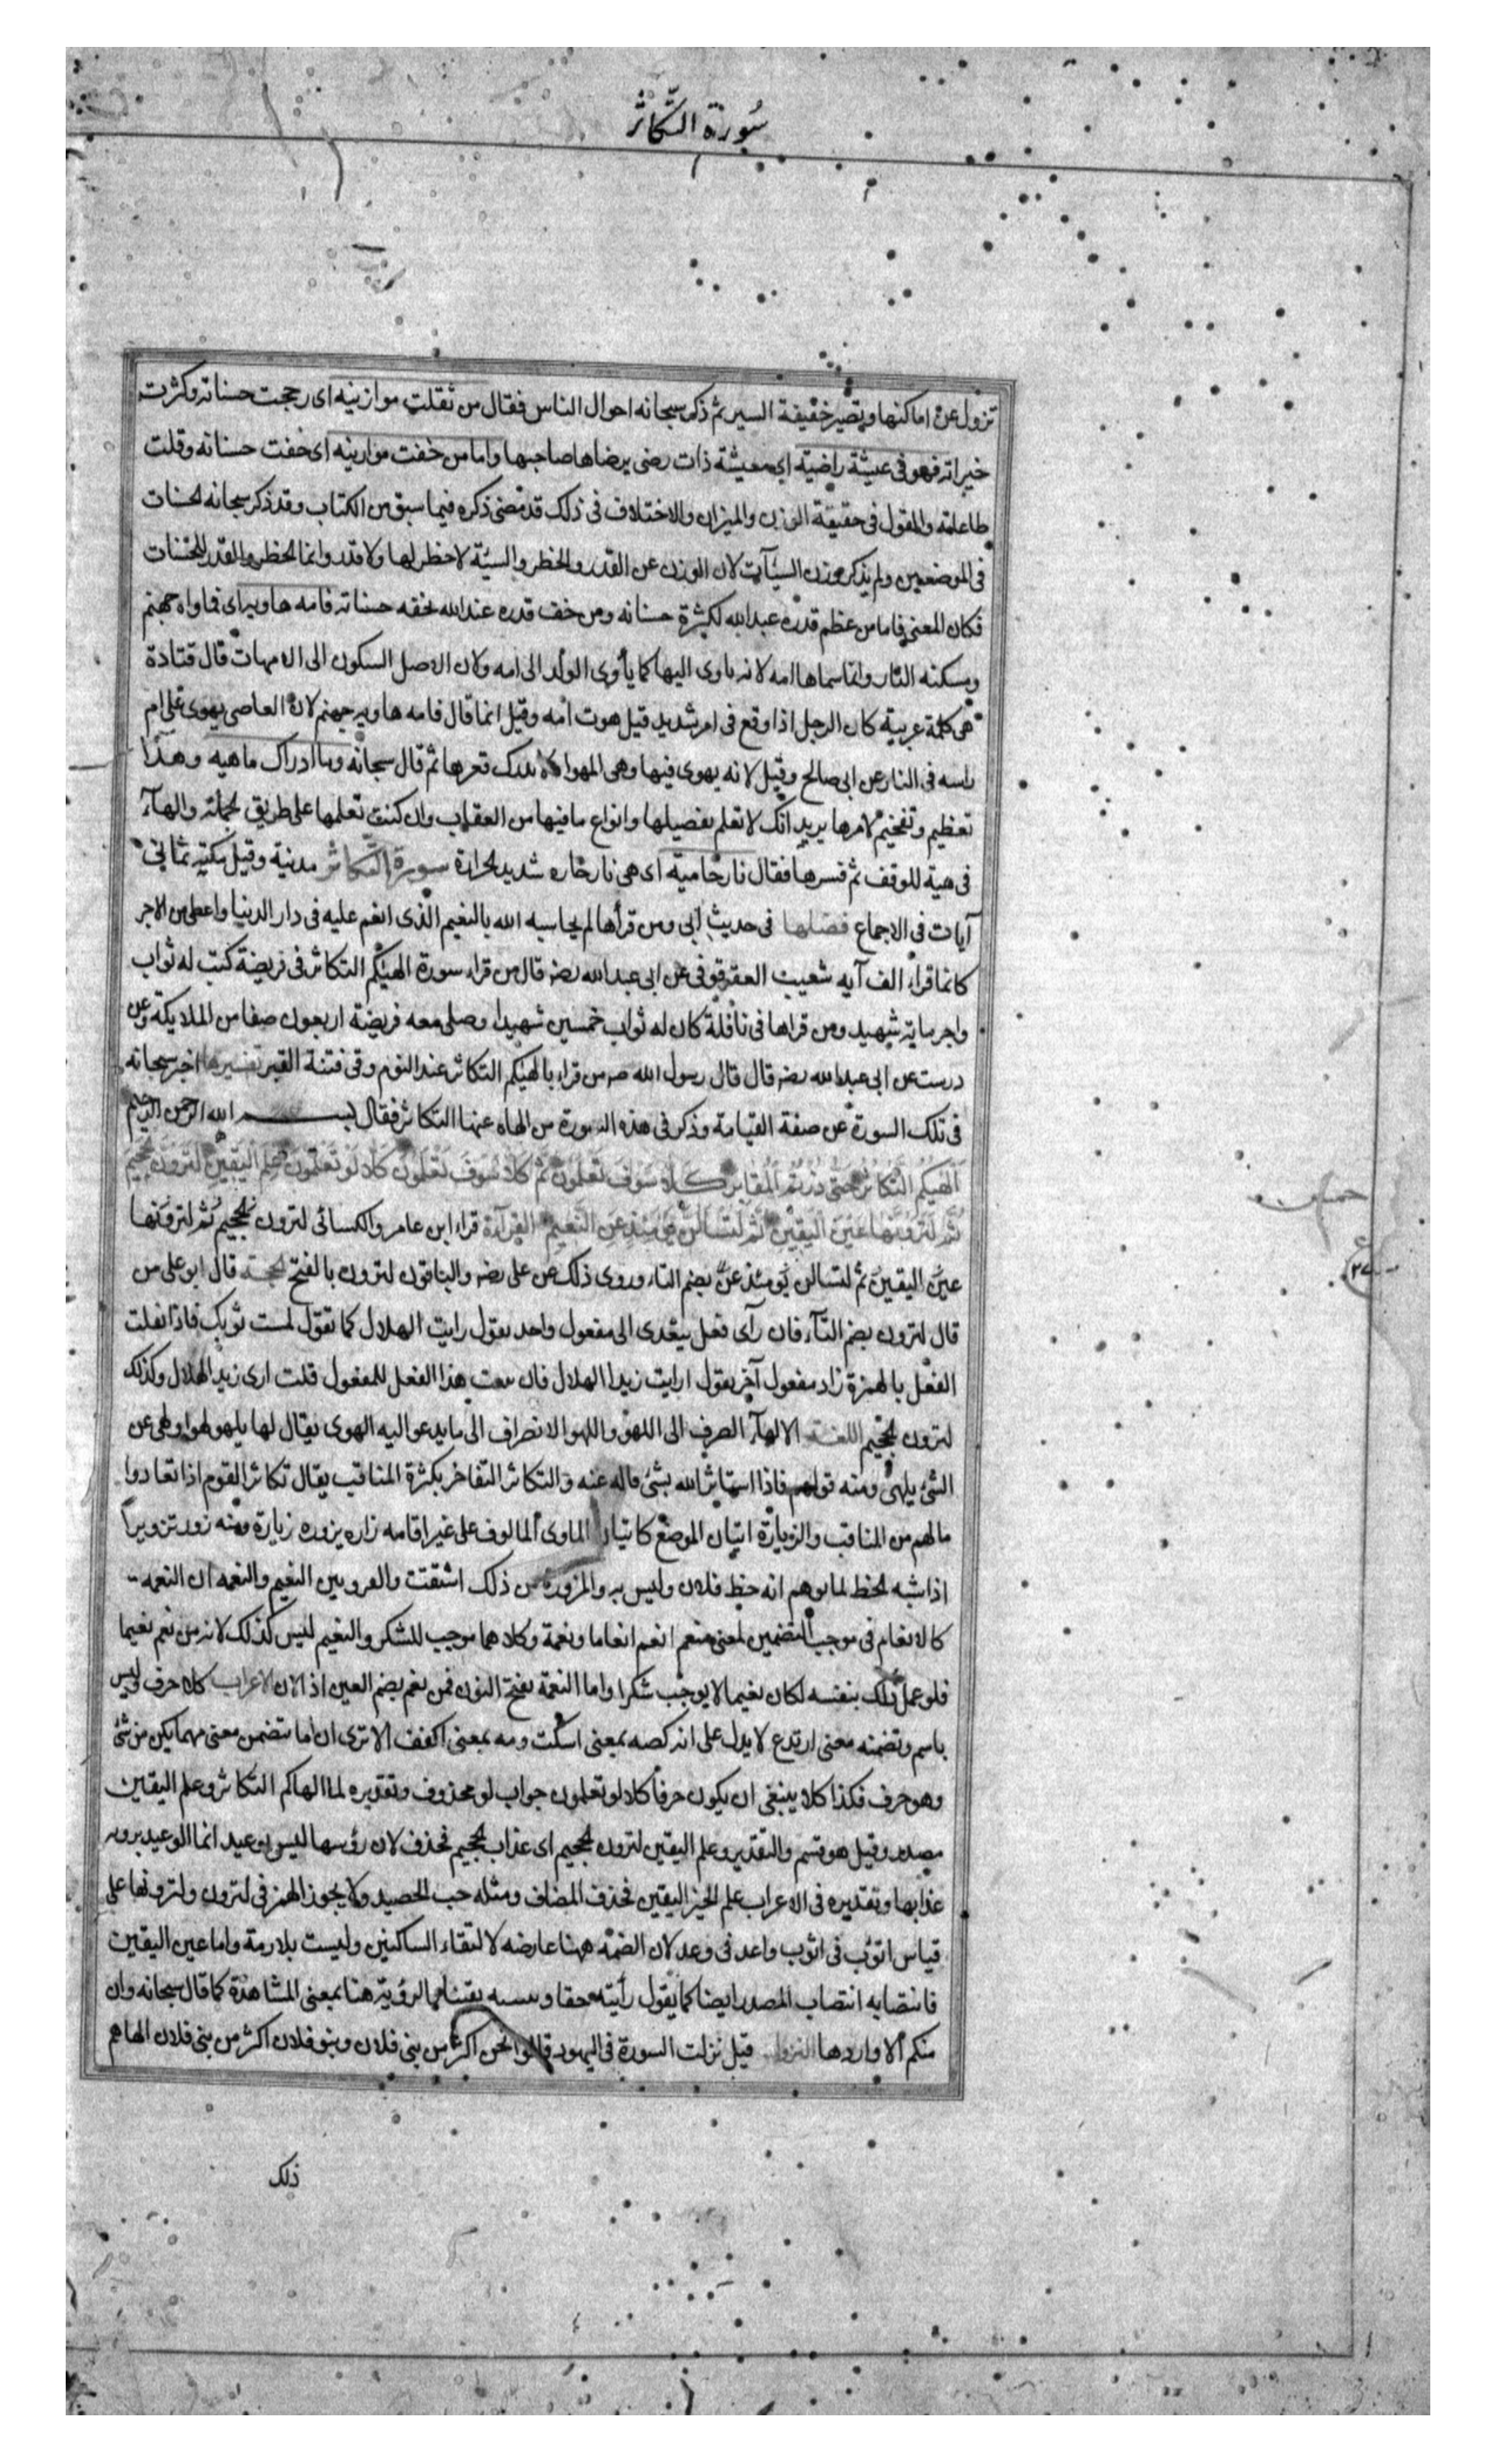 سُورة التَّكاثر
تزول عن اماكنها ويصير خفيفة السير ثم ذكر سبحانه احوال الناس فقال من ثقلت موازينه اى رجحت حسناته وكثرت
خيراته فهو فى عيشة راضية اى معيشة ذات رضى يرضاها صاحبها واما من خفت موازينه اى خفت حسناته وقلت
طاعاته والقول فى حقيقة الوزن والميزان والاختلاف فى ذلك قد مضى ذكره فيما سبق من الكتاب وقد ذكر سبحانه الحسنات
فى الموضعين ولم يذكر وزن السيئآت لان الوزن عن القدر والخطر والسيئة لا خطر لها ولا قدر وانما الخطر والقدر للحسنات
فكان المعنى فاما من عظم قدره عند الله لكثرة حسناته ومن خف قدره عند الله لخفه حسناته فامه هاويه اى فماواه جهنم
ومسكنه النار وانما سماها امه لانه ياوى اليها كما يأوى الولد الى امه ولان الاصل السكون الى الامهات قال قتادة
هى كلمة عربية كان الرجل اذا وقع فى امر شديد قيل هوت امه وقيل انما قال فامه هاويه جهنم لان العاصى يهوى على ام
راسه فى النار عن ابى صالح وقيل لانه يهوى فيها وهى المهواة لا يدرك قعرها ثم قال سبحانه وما ادراك ماهيه وهذا
تعظيم وتفخيم لامرها يريد انك لا تعلم تفصيلها وانواع ما فيها من العقاب وان كنت تعلمها على طريق الجملة والهآء
فى هية للوقف ثم فسرها فقال نار حامية اى هى نار حاره شديد الحرارة سورة التكاثر مدنية وقيل مكية ثمانى
آيات فى الاجماع فضلها فى حديث ابى ومن قرأها لم يحاسبه الله بالنعيم الذى انعم عليه فى دار الدنيا واعطى من الاجر
كانما قراء الف آيه شعيب العقرقوفى عن ابى عبد الله رضه قال من قراء سورة الهيكم التكاثر فى فريضة كتب له ثواب
واجر مايه شهيد ومن قراها فى نافلة كان له ثواب خمسين شهيدا وصلى معه فريضة اربعون صفا من الملايكة وعن
درست عن ابى عبد الله رضه قال قال رسول الله صه من قراء بالهيكم التكاثر عند النوم وقى فتنة القبر تفسيرها اخبر سبحانه
فى تلك السورة عن صفة القيامة وذكر فى هذه السورة من الهاه عنها التكاثر فقال بسم الله الرحمن الرحيم
اَلْهيكُمُ التَّكَاثُرُ حَتَّى زُرْتُمُ الْمَقَابِرَ كَلَّا سَوْفَ تَعْلَمُونَ ثُمَّ كَلَّا سَوْفَ تَعْلَمُونَ كَلَّا لَوْ تَعْلَمُونَ عِلْمَ الْيَقِينِ لَتَرَوُنَّ الْجَحِيمَ
ثُمَّ لَتَرَوُنَّهَا عَيْنَ الْيَقِينِ ثُمَّ لَتُسْأَلُنَّ يَوْمَئِذٍ عَنِ النَّعِيمِ القرآءة قراء ابن عامر والكسائى لترون الجحيم ثم لترونها
عين اليقين ثم لتسالن يومئذ عن بضم التاء وروى ذلك عن على رضه والباقون لترون بالفتح الحجة قال ابو على من
قال لترون بضم التآء فان رآى فعل يتعدى الى مفعول واحد يقول رايت الهلال كما تقول لمست ثوبك فاذا نقلت
الفعل بالهمزة زاد مفعول آخر يقول ارايت زيدا الهلال فان بنيت هذا الفعل للمفعول قلت ارى زيد الهلال وكذلك
لترون الجحيم اللغة الالهآء الصرف الى اللهو واللهو الانصراف الى ما يدعو اليه الهوى يقال لها يلهو لهوا ولهى عن
الشئ يلهى ومنه قولهم فاذا استاثر الله بشئ فاله عنه والتكاثر التفاخر بكثرة المناقب يقال تكاثر القوم اذا تعادوا
مالهم من المناقب والزيارة اتيان الموضع كاتيان الماوى المالوف على غير اقامه زاره يزوره زيارة ومنه زور تزويرا
اذا شبه الخط لما يوهم انه خط فلان وليس به والمزورة من ذلك اشتقت والفرق بين النعيم والنعمه ان النعمه
كالانعام فى موجب التضمين لمعنى منعم انعم انعاما ونعمة وكلاهما موجب للشكر والنعيم ليس كذلك لانه من نعم نعيما
فلو عمل ذلك بنفسه لكان نعيما لا يوجب شكرا واما النعمة بفتح النون فمن نعم بضم العين اذا لان الاعراب كلا حرف وليس
باسم وتضمنه معنى ارتدع لا يدل على انه كصه بمعنى اسكت ومه بمعنى اكفف الا ترى ان اما تتضمن معنى مهما يكن من شئ
وهو حرف فكذا كلا ينبغى ان يكون حرفا كلا لو تعلمون جواب لو محذوف وتقديره لما الهاكم التكاثر وعلم اليقين
مصدر وقيل هو قسم والتقدير وعلم اليقين لترون الجحيم اى عذاب الجحيم فحذف لان رؤيتها ليس بوعيد انما الوعيد برويه
عذابها وتقديره فى الاعراب علم الخبر اليقين فحذف المضاف ومثله حب الحصيد ولا يجوز الهمز فى لترون ولترونها على
قياس اثؤب فى اثوب واعد فى وعد لان الضمة ههنا عارضه لالتقاء الساكنين وليست بلازمة واما عين اليقين
فانتصابه انتصاب المصدر ايضا كما يقول رأيته حقا وتبينته يقينا فالرؤية هنا بمعنى المشاهدة كما قال سبحانه وان
منكم الا واردها النزول قيل نزلت السورة فى اليهود قالوا نحن اكثر من بنى فلان وبنو فلان اكثر من بنى فلان الهاهم
ذلك